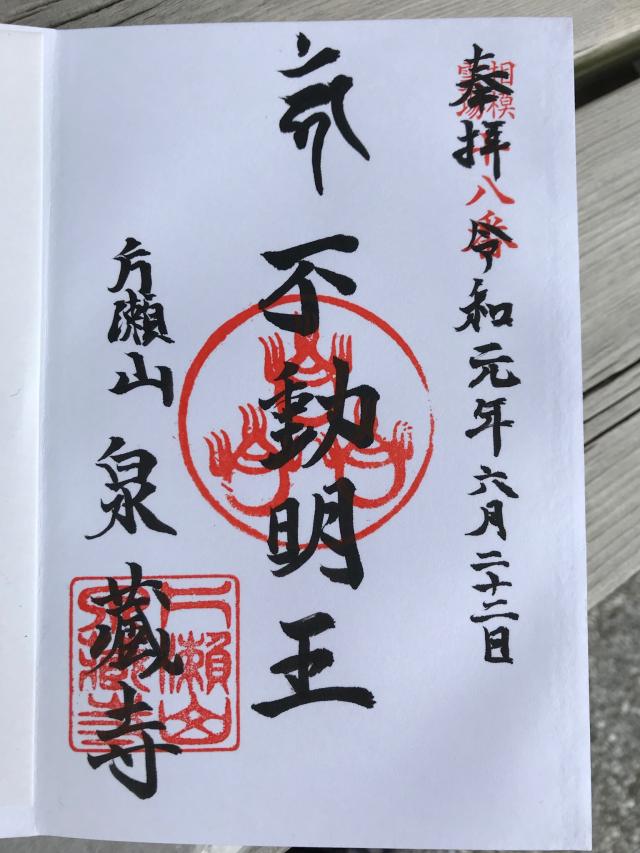 奉拝
令和元年六月二十二日
相模
霊場
十八番
不動明王
片瀬山
泉蔵寺
片瀬山
泉蔵寺